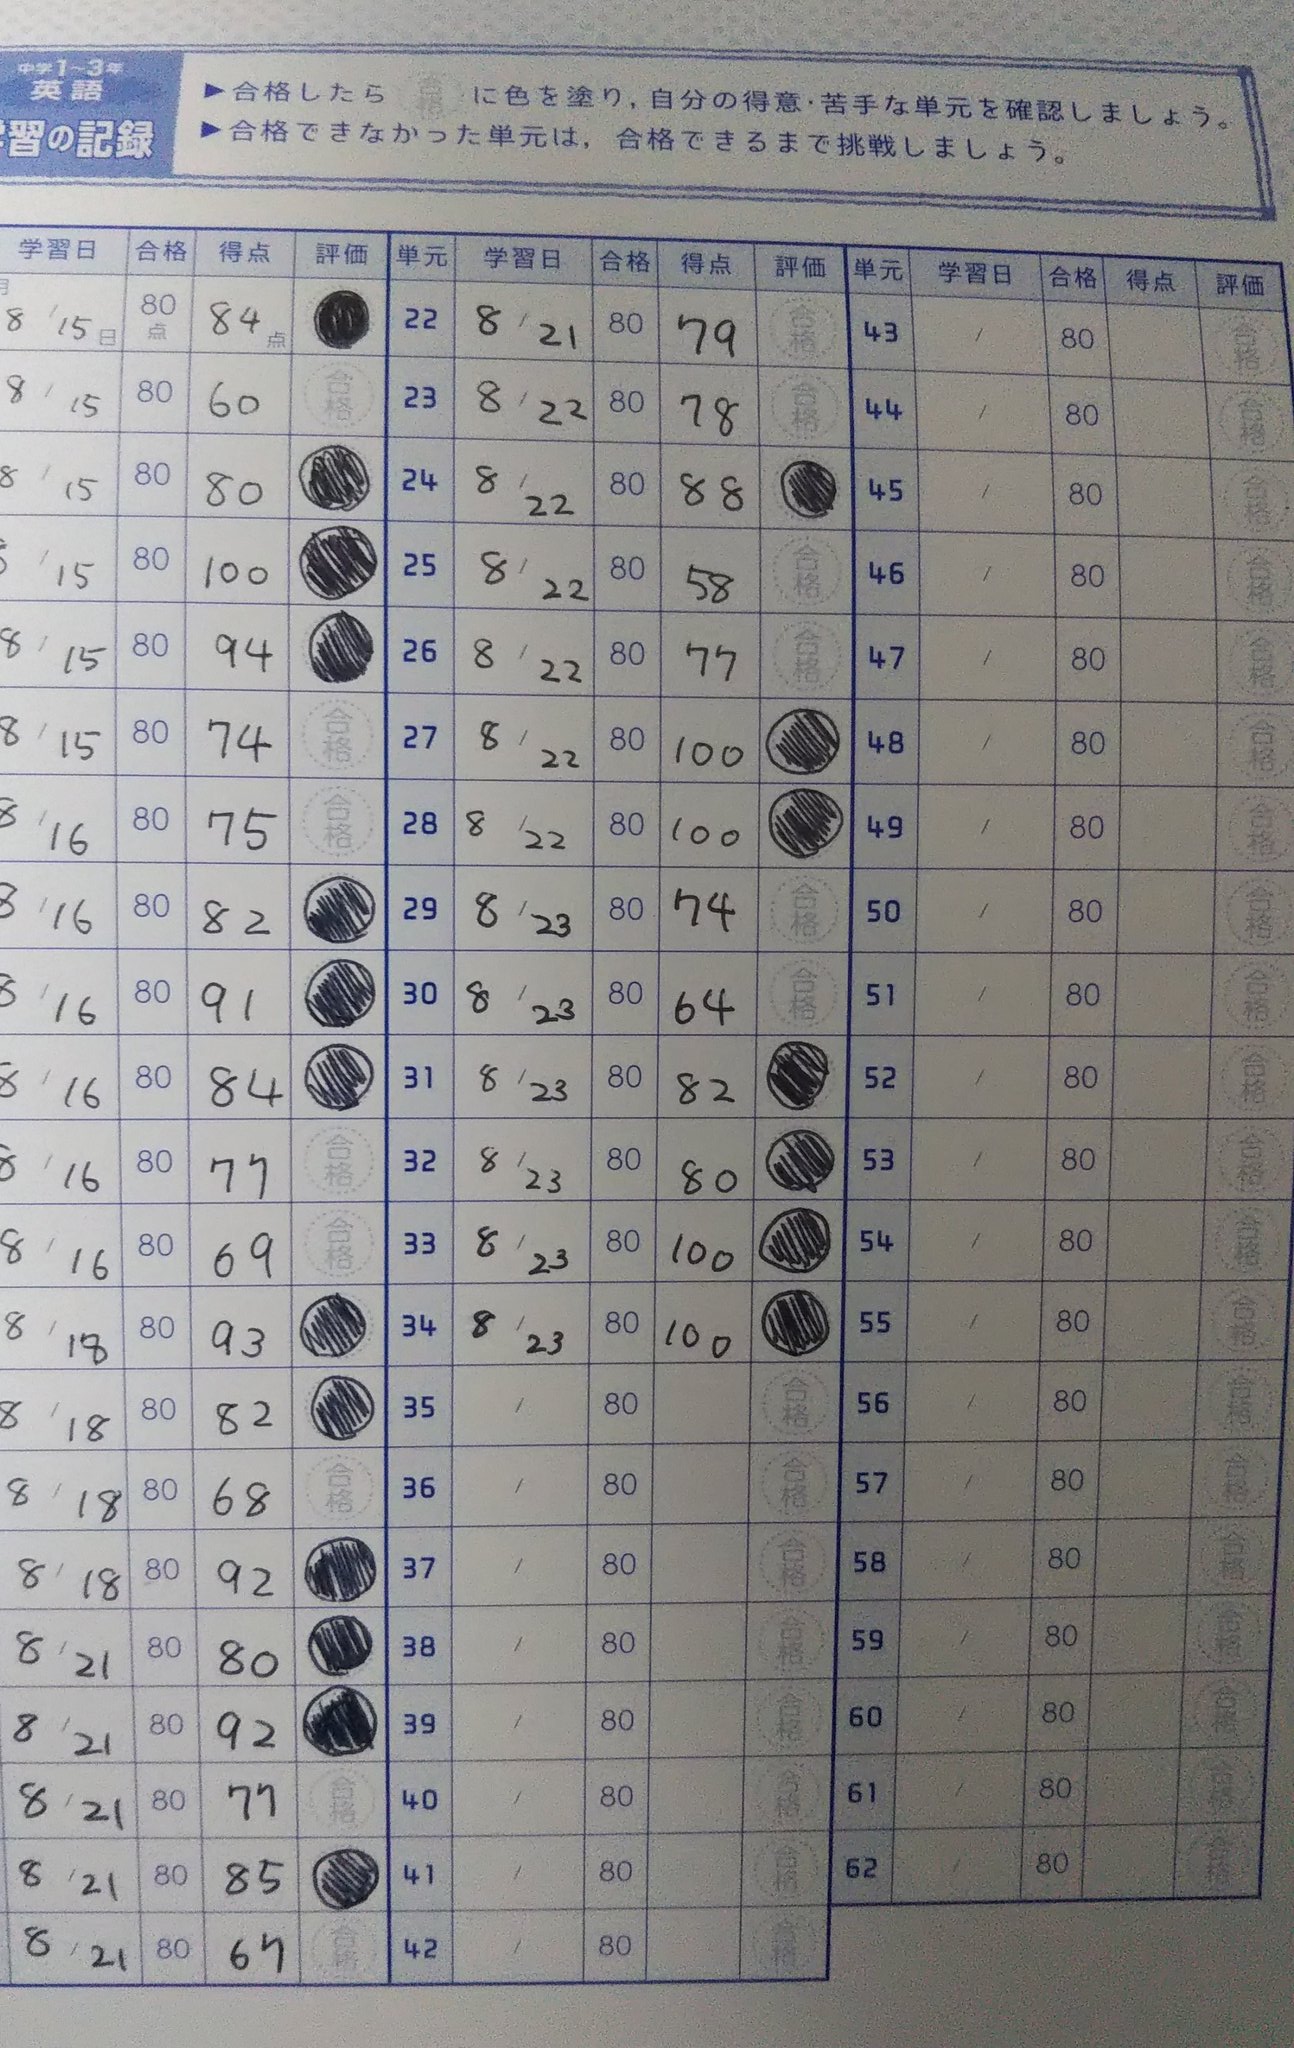 中学1~3年
英語
学習の記録
▶合格したら 合格 に色を塗り,自分の得意・苦手な単元を確認しましょう。
▶合格できなかった単元は,合格できるまで挑戦しましょう。
学習日 合格 得点 評価 単元 学習日 合格 得点 評価 単元 学習日 合格 得点 評価
8月/15日 80点 84点 22 8/21 80 79 合格 43 / 80 合格
8/15 80 60 合格 23 8/22 80 78 合格 44 / 80 合格
8/15 80 80 24 8/22 80 88 45 / 80 合格
8/15 80 100 25 8/22 80 58 合格 46 / 80 合格
8/15 80 94 26 8/22 80 77 合格 47 / 80 合格
8/15 80 74 合格 27 8/22 80 100 48 / 80 合格
8/16 80 75 合格 28 8/22 80 100 49 / 80 合格
8/16 80 82 29 8/23 80 74 合格 50 / 80 合格
8/16 80 91 30 8/23 80 64 合格 51 / 80 合格
8/16 80 84 31 8/23 80 82 52 / 80 合格
8/16 80 77 合格 32 8/23 80 80 53 / 80 合格
8/16 80 69 合格 33 8/23 80 100 54 / 80 合格
8/18 80 93 34 8/23 80 100 55 / 80 合格
8/18 80 82 35 / 80 合格 56 / 80 合格
8/18 80 68 合格 36 / 80 合格 57 / 80 合格
8/18 80 92 37 / 80 合格 58 / 80 合格
8/21 80 80 38 / 80 合格 59 / 80 合格
8/21 80 92 39 / 80 合格 60 / 80 合格
8/21 80 77 合格 40 / 80 合格 61 / 80 合格
8/21 80 85 41 / 80 合格 62 / 80 合格
8/21 80 67 合格 42 / 80 合格